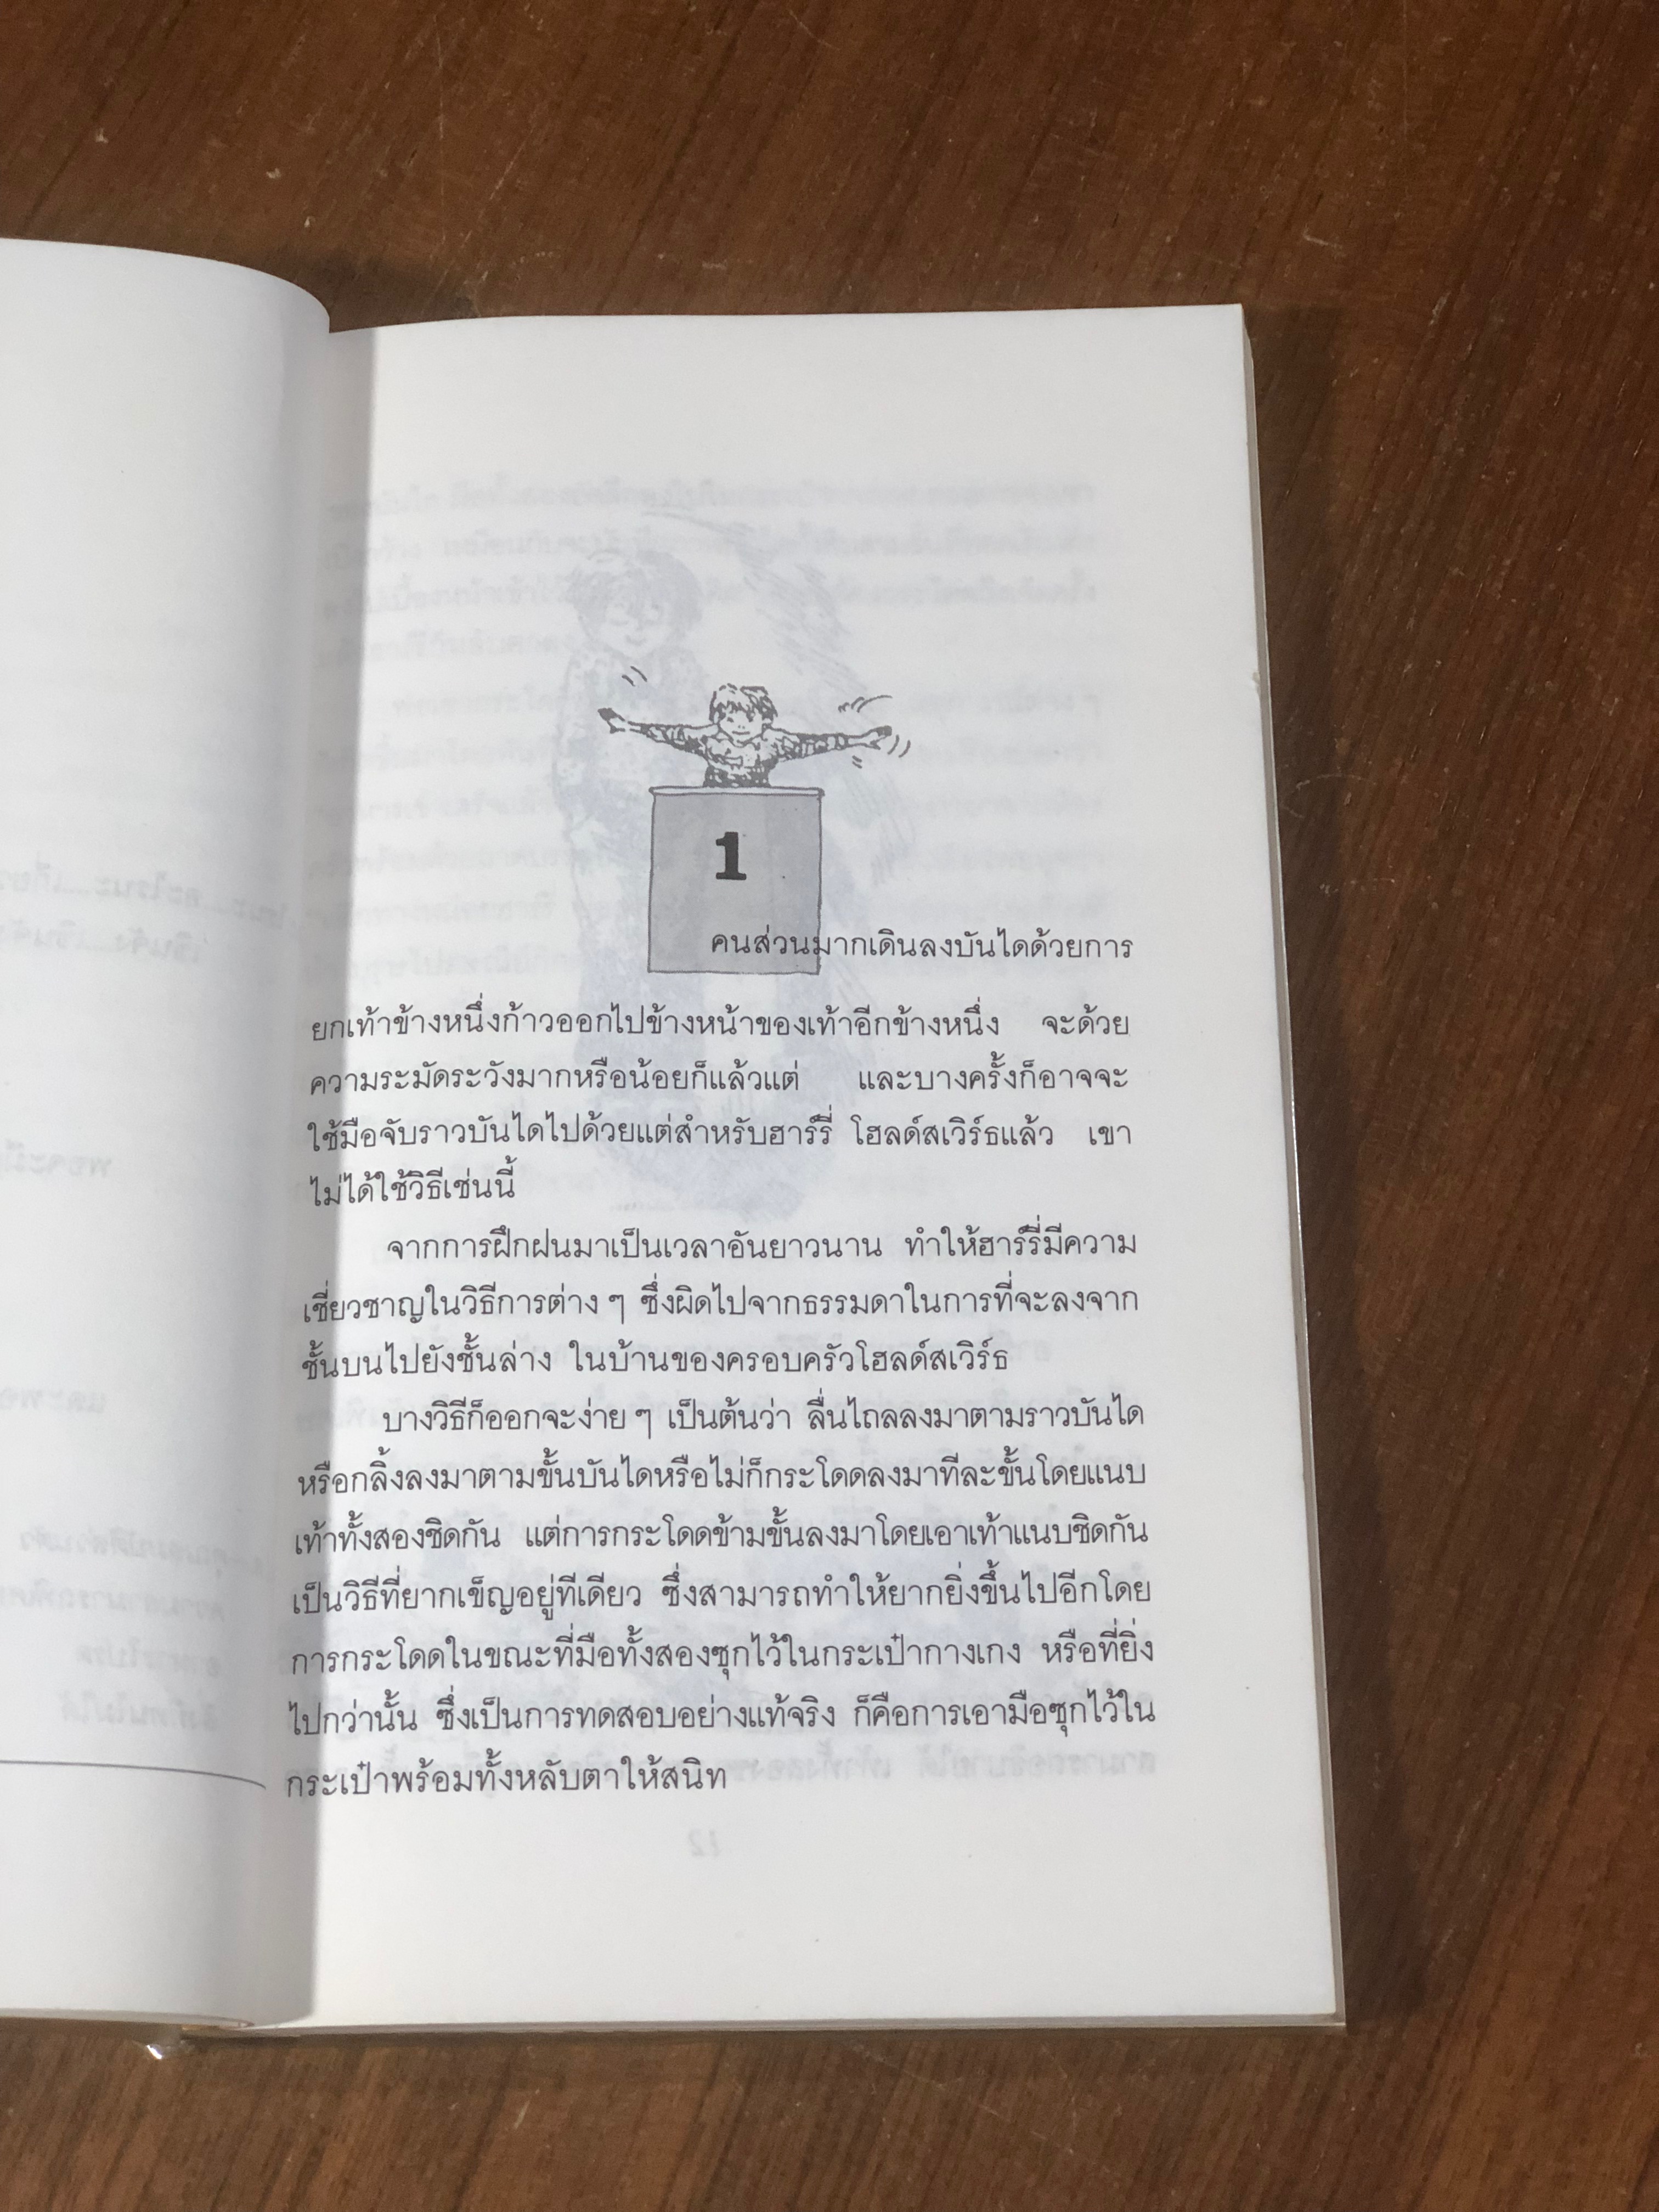 1
คนส่วนมากเดินลงบันไดด้วยการ
ยกเท้าข้างหนึ่งก้าวออกไปข้างหน้าของเท้าอีกข้างหนึ่ง จะด้วย
ความระมัดระวังมากหรือน้อยก็แล้วแต่ และบางครั้งก็อาจจะ
ใช้มือจับราวบันไดไปด้วยแต่สำหรับฮาร์รี่ โฮลด์สเวิร์ธแล้ว เขา
ไม่ได้ใช้วิธีเช่นนี้
จากการฝึกฝนมาเป็นเวลาอันยาวนาน ทำให้ฮาร์รี่มีความ
เชี่ยวชาญในวิธีการต่าง ๆ ซึ่งผิดไปจากธรรมดาในการที่จะลงจาก
ชั้นบนไปยังชั้นล่าง ในบ้านของครอบครัวโฮลด์สเวิร์ธ
บางวิธีก็ออกจะง่าย ๆ เป็นต้นว่า ลื่นไถลลงมาตามราวบันได
หรือกลิ้งลงมาตามขั้นบันไดหรือไม่ก็กระโดดลงมาทีละขั้นโดยแนบ
เท้าทั้งสองชิดกัน แต่การกระโดดข้ามขั้นลงมาโดยเอาเท้าแนบชิดกัน
เป็นวิธีที่ยากเข็ญอยู่ทีเดียว ซึ่งสามารถทำให้ยากยิ่งขึ้นไปอีกโดย
การกระโดดในขณะที่มือทั้งสองซุกไว้ในกระเป๋ากางเกง หรือที่ยิ่ง
ไปกว่านั้น ซึ่งเป็นการทดสอบอย่างแท้จริง ก็คือการเอามือซุกไว้ใน
กระเป๋าพร้อมทั้งหลับตาให้สนิท